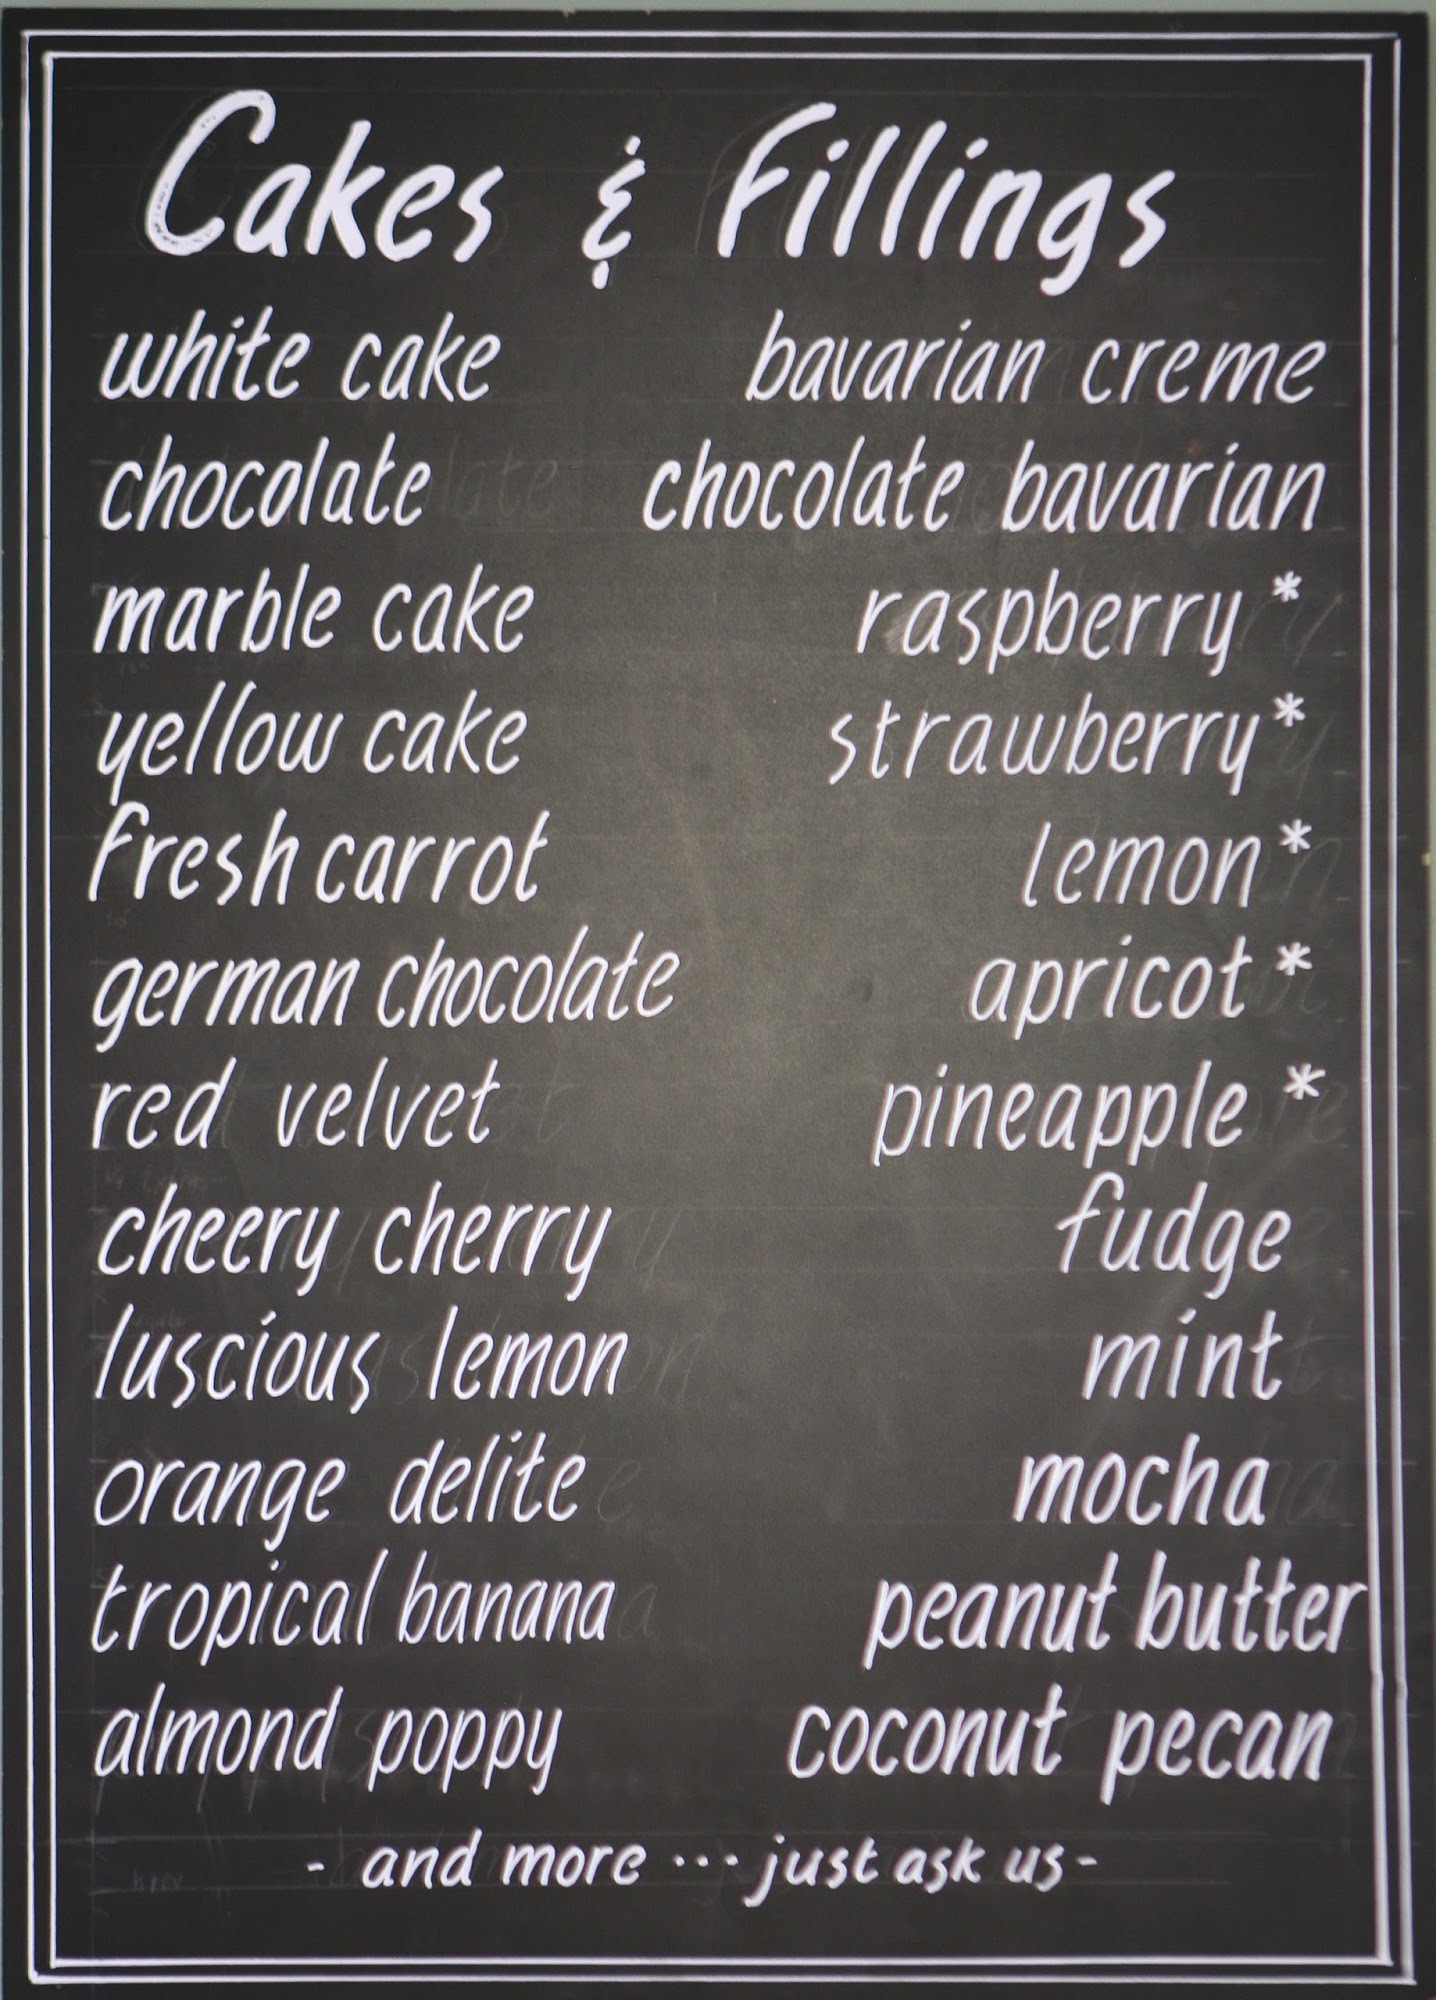 Cakes & Fillings
white cake bavarian creme
chocolate chocolate bavarian
marble cake raspberry *
yellow cake strawberry *
fresh carrot lemon *
german chocolate apricot *
red velvet pineapple *
cheery cherry fudge
luscious lemon mint
orange delite mocha
tropical banana peanut butter
almond poppy coconut pecan
- and more ... just ask us -